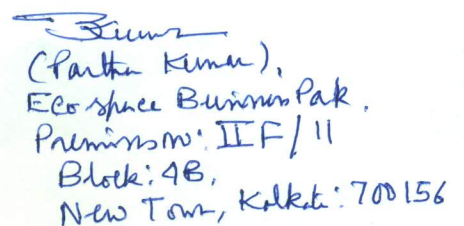 (Partha Kumar),
Ecospace Business Park.
Premises no: IIF/11
Block: 4B,
New Town, Kolkata: 700156